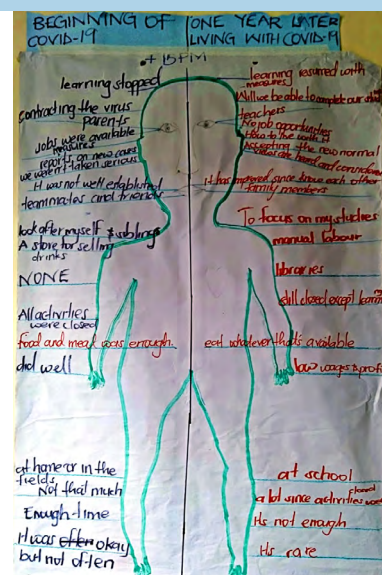 BEGINNING OF
COVID-19
ONE YEAR LATER
LIVING WITH COVID-19
learning stopped
contracting the virus
parents
Jobs were available
measures
reports on new cases
we weren't taken serious
It was not well established
teammates and friends
look after myself & siblings
A store for selling
drinks
NONE
All activities
were closed
food and meat was enough.
did well
at home or in the
fields
Not that much
Enough-time
It was often okay
but not often
learning resumed with
measures
Will we be able to complete our
teachers
No job opportunities
How to live with it
Accepting the new normal
voices are heard and considered
It has improved since know each other
family members
To focus on my studies
manual labour
libraries
still closed except
eat whatever that's available
low wages &
at school
closed
a lot since activities
It's not enough
It's rare